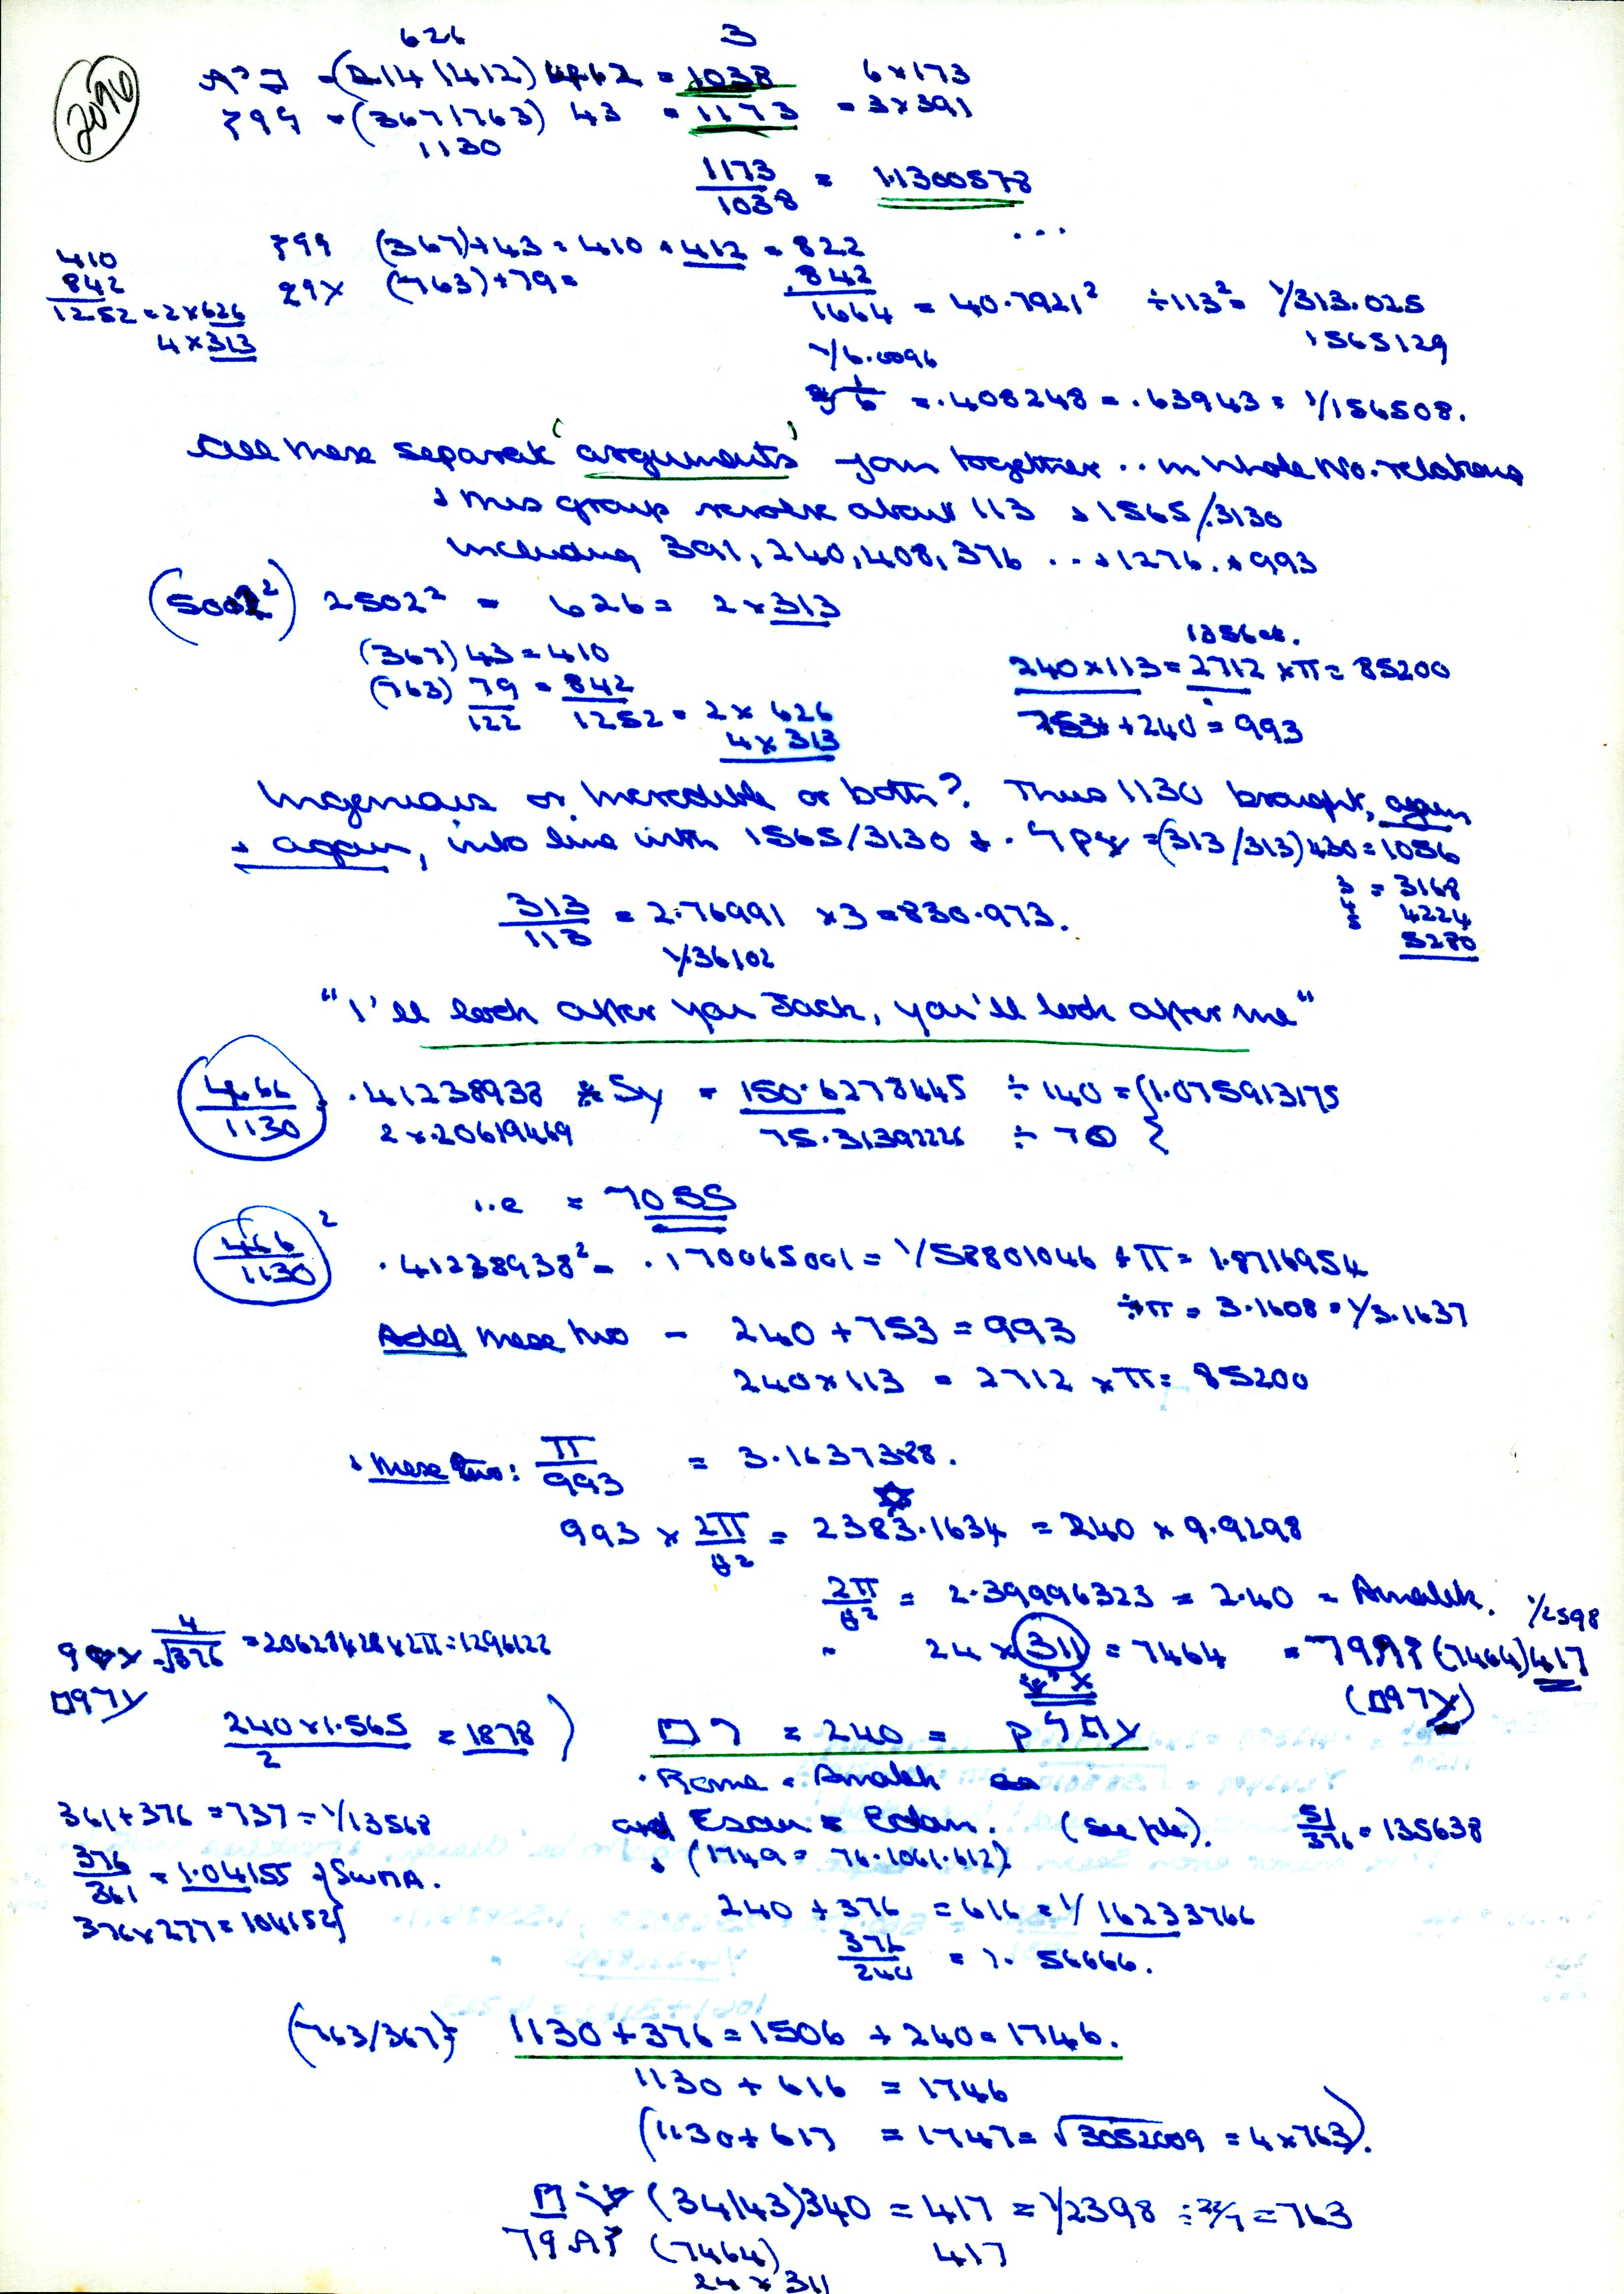 2096
626 3
(214/412) = 1038 6×173
(367/763) 43 = 1173 = 3×391
1130
1173/1038 = 1.1300578
...
(367)+43 = 410 + 412 = 822
410
842
1252 = 2×626
4×313
(763)+79 =
842
1664 = 40.7921² ÷113² = 1/313.025
1/6.0096
1565129
= .408248 = .63943 = 1/156508.
All these separate 'arguments' join together .. in whole No. relations
+ this group revolve about 113 + 1565/3130
including 391, 240, 408, 376 ... + 1276. + 993
2502² = 626 = 2×313
(367) 43 = 410
(763) 79 = 842
122 1252 = 2×626
4×313
240×113 = 2712 ×π = 85200
753+ +240 = 993
Ingenious or Incredible or both? Thus 1130 brought, again
+ again, into line with 1565/3130 + (313/313)430 = 1056
3 = 3168
4 4224
5 5280
313/113 = 2.76991 ×3 = 830.973.
1/36102
"I'll look after you Jack, you'll look after me"
466/1130 .41238938 × Sy = 150.6278445 ÷ 140 = {1.075913175
2×.20619469 75.31392226 ÷ 70 }
i.e = 7055
(466/1130)² .41238938² = .170065001 = 1/58801046 + π = 1.8716954
÷π = 3.1608 = 1/3.1637
Add these two - 240 + 753 = 993
240×113 = 2712 ×π = 85200
+ these two: π/993 = 3.1637388.
993 × 2π/θ² = 2383.1634 = 240 × 9.9298
2π/θ² = 2.39996323 = 2.40 = Amalek. 1/2598
4/√376 = 20628428×2π = 1296122
24 × 311 = 7464 = (7464) 417
240×1.565/2 = 1878 )
= 240 =
. Rome = Amalek
361+376 = 737 = 1/13568
and Esau = Edom. (see file). 51/376 = 135638
+ (1749 = 76.1061.612)
376/361 = 1.04155
376×277 = 104152
240 + 376 = 616 = 1/16233766
376/240 = 1.56666.
(763/367) 1130+376 = 1506 + 240 = 1746.
1130 + 616 = 1746
(1130+617 = 1747 = √3052009 = 4×763).
(34/43)340 = 417 = 1/2398 ÷ 22/7 = 763
(7464) 417
24 × 311